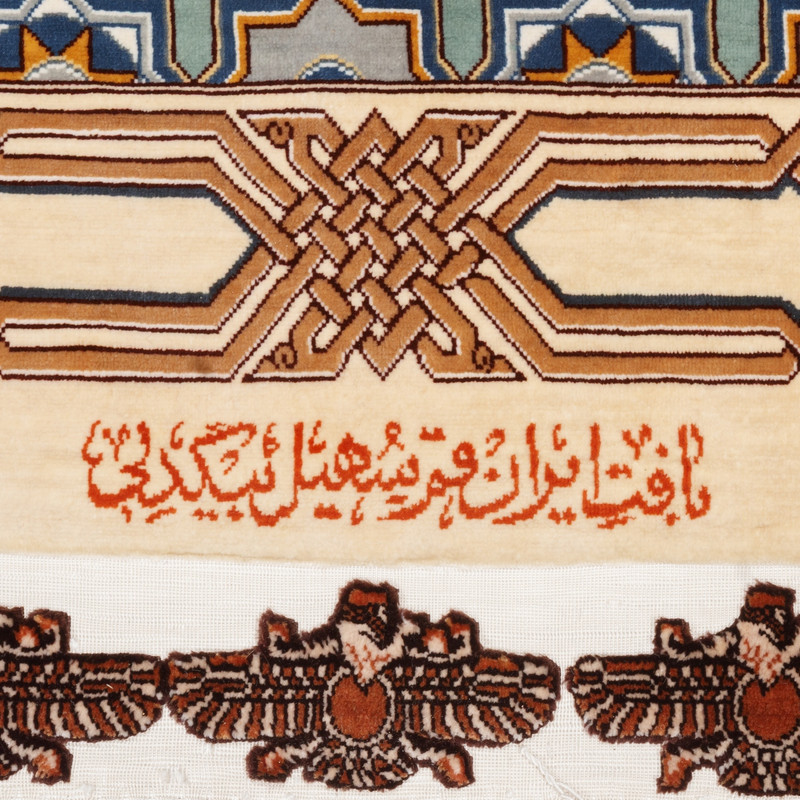 بافت ایران قم سهیل بیکدلی